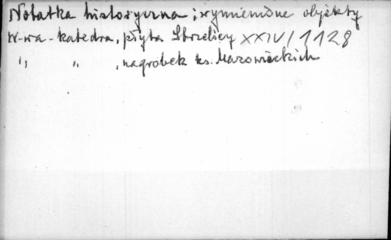 Notatka historyczna ; wymienione objekty
W-wa - katedra, płyta Strzelicy XXIV/1128
" " , nagrobek ks. Mazowieckich